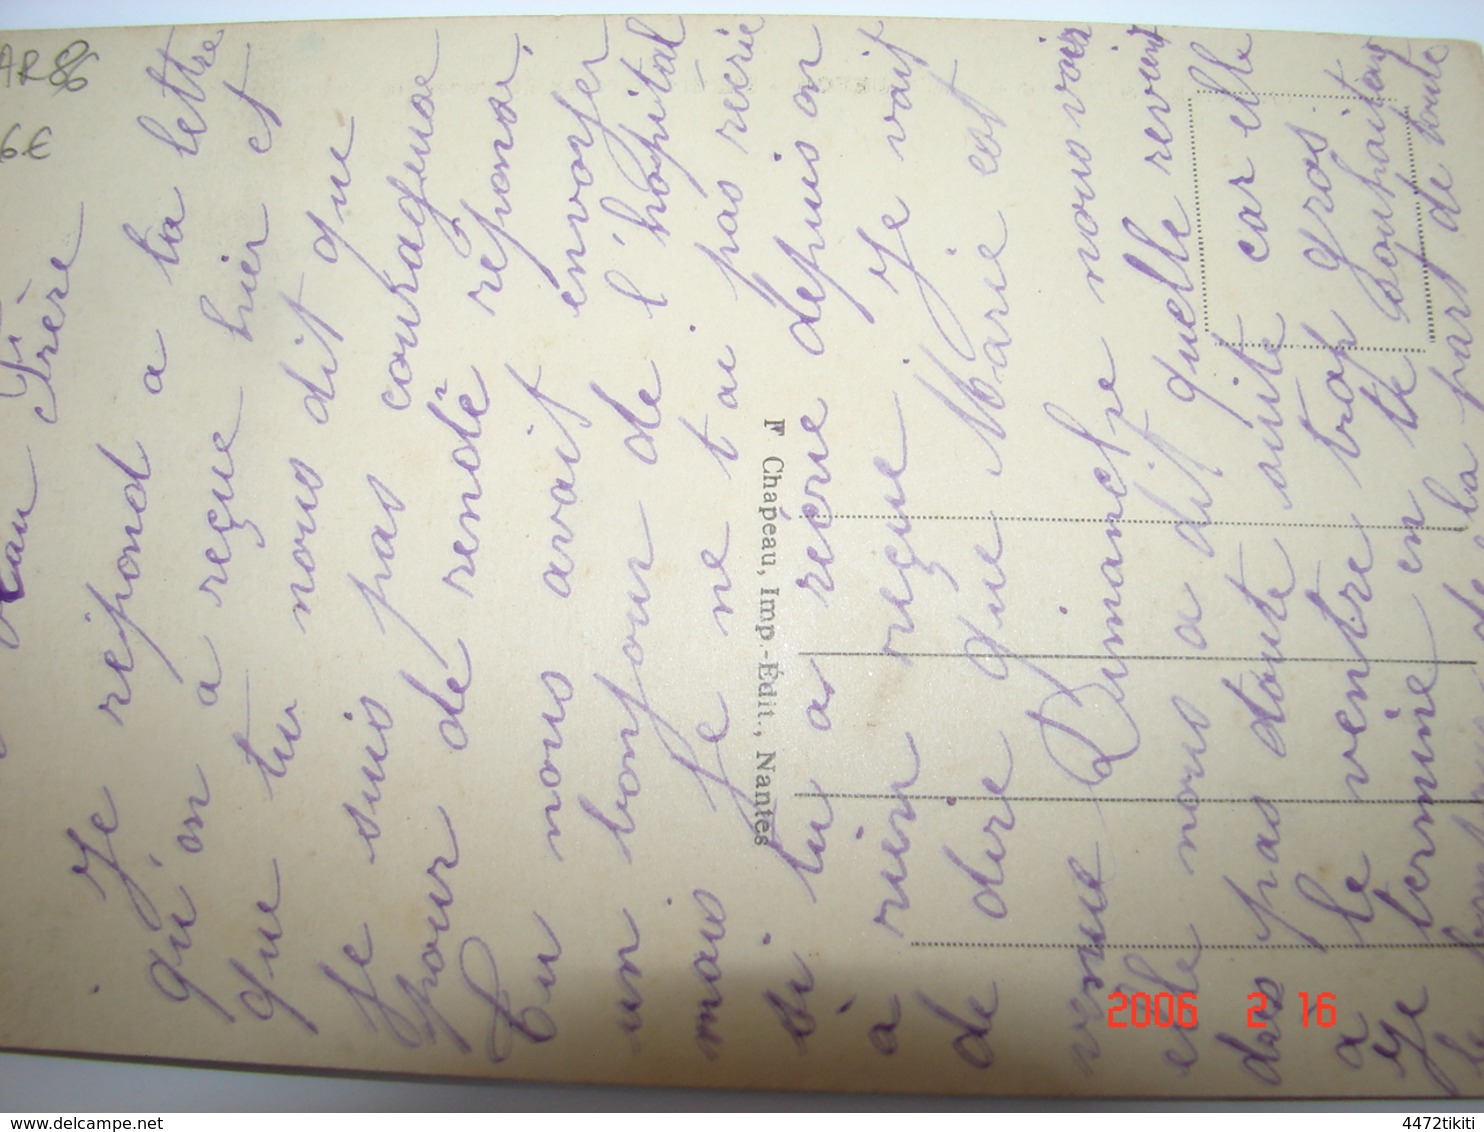 AR86
6€
Frère
Je répond a ta lettre
qu'on a reçue hier et
que tu nous dit que
je suis pas courageuse
pour de rendê réponse,
tu nous avait envoyer
un bonjour de l'hopital
mais je ne t'ai pas récrie
si tu a récrue depuis on
à rien reçue. Je vait
de dire que Marie est
venue Dimanche nous voir
elle nous a dit quelle revient
dras pas doute suite car elle
a le ventre trop gros.
Je termine en te souhaitan
le bonjour de la part de toute
F Chapeau, Imp.-Édit., Nantes
2006 2 16
www.delcampe.net
4472tikiti